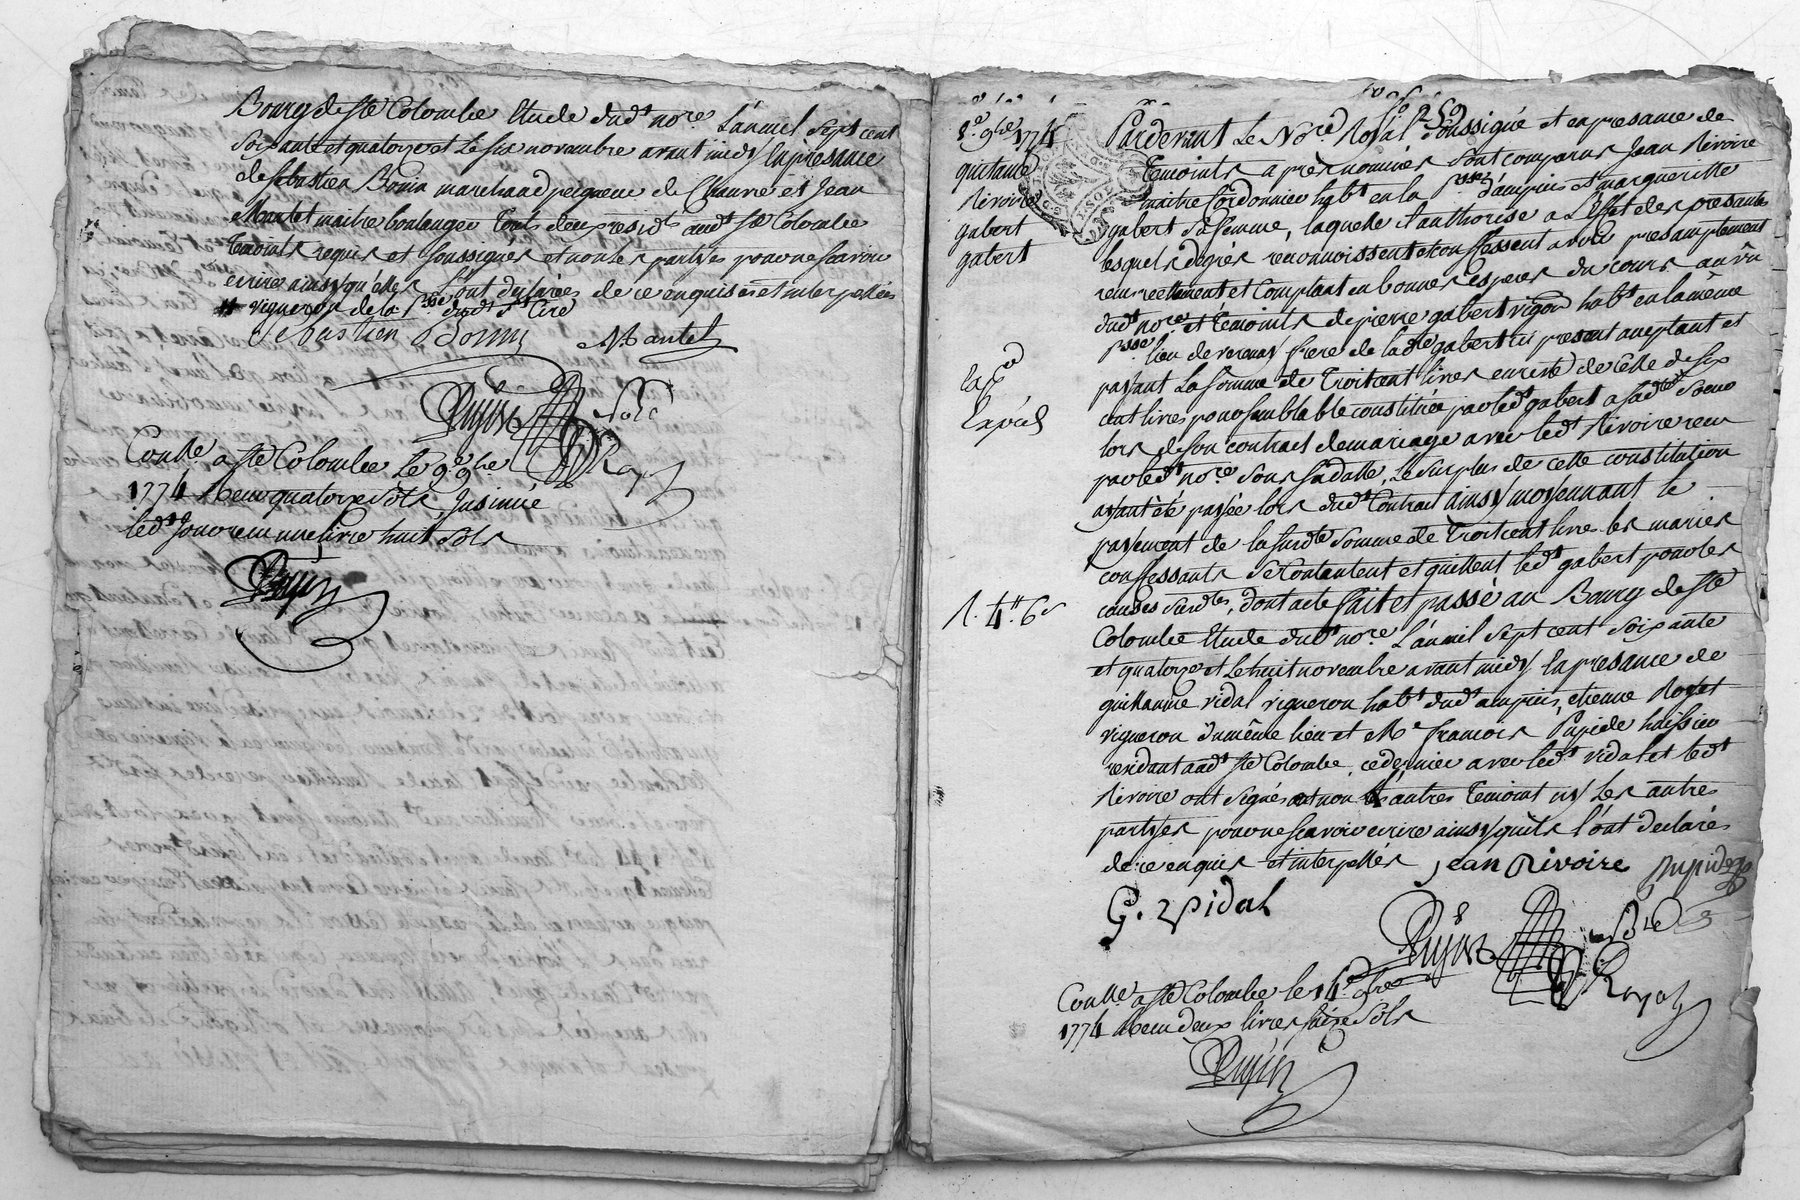 Bourg de Ste Colombe Etude dudt nore L'an mil sept cent
Soixante et quatorze et Le six novembre avant midy En presance
de Sebastien Bonin marchand peigneur de Chanvre et Jean
Mantet maitre boulanger touts deux residts audt Ste Colombe
temoints requis et soussignés et non les partyes pour ne scavoir
ecrire ainsy qu'elles l'ont declarées de ce enquises et interpellées
vigneron de la psse dudt St Cire
Sebastien Bonin Mantet
Pupier Nore
Conlle a Ste Colombe Le 9e 9bre Royal
1774 Recu quatorze Sols, Insinué
ledt Jour recu une livre huit Sols
Pupier
8e 9bre 1774
quitance
Rivoire
gabert
gabert
Pardevant Le Nore Royal Soussigné et en presance de
temoints après nommés Sont comparus Jean Rivoire
maitre Cordonnier habt en la psse d'ampuis et margueritte
gabert Sa femme, laquelle il authorise a L'effet des presantes
lesquels degrés reconnoissent et confessent avoir presantement
reçu reellement et Comptant en bonnes especes du cours au vû
dudt nore et temoints de pierre gabert vigon habt en la même
psse lieu de verenay frere de lade gabert ici present acceptant et
payant La Somme de troit cent livres en reste de celle de six
cent livres pour semblable constituée par ledt gabert a sade Soeur
lors de son contract de mariage avec ledt Rivoire recu
par ledt nore Sous Sa datte, Le Surplus de cette constitution
ayant été payée lors dudt Contract ainsy moyennant le
payement de la susde Somme de troit cent livre les mariés
confessants Se Contentent et quittent ledt gabert pour les
causes Susdes, dont acte fait et passé au Bourg de Ste
Colombe Etude dudt nore L'an mil sept cent soixante
et quatorze et Le huit novembre avant midy En presance de
guillaume vidal vigneron habt dudt ampuis, etienne Royet
vigneron du même lieu et Me francois Pupide huissier
residant audt Ste Colombe, ce dernier avec ledt vidal et ledt
Rivoire ont signés et non les autres temoint ny Les autres
partyes pour ne scavoir ecrire ainsy qu'ils l'ont declarés
de ce enquis et interpellés Jean Rivoire Pupide
G. Vidal
Pupier Nore
Royal
Conlle a Ste Colombe le 14e 9bre
1774 Recu deux livres saize Sols
Pupier
Expiés
R. 4tt. 6s